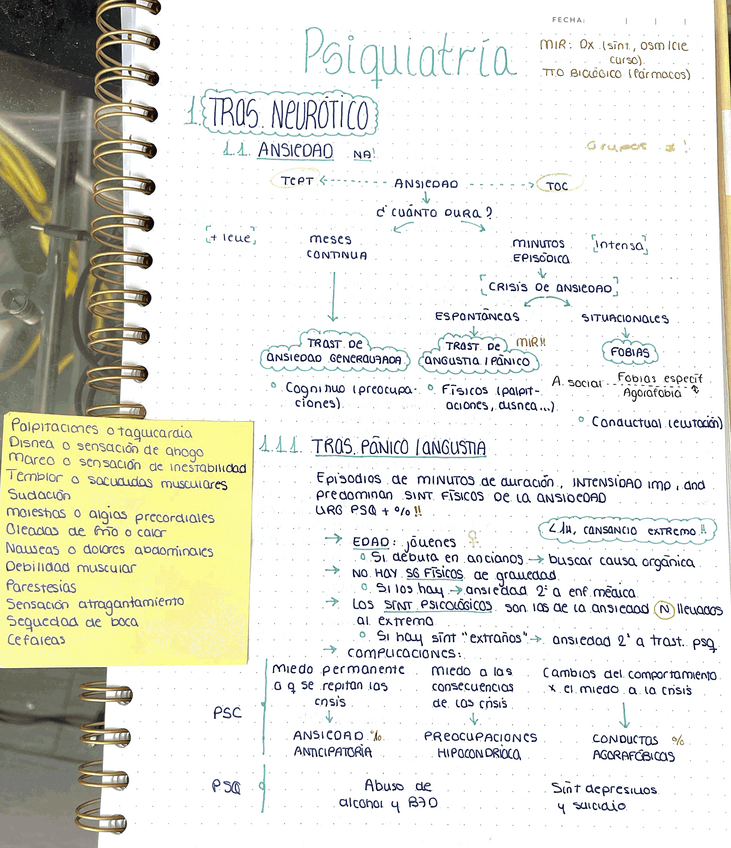 FECHA:
Psiquiatría
MIR: Dx (sínt, DSM/CIE
curso).
TTO BIOLÓGICO (Fármacos)
1. TRAS. NEURÓTICO
Grupos x!
1.1. ANSIEDAD NA!
TEPT ANSIEDAD TOC
¿CUÁNTO DURA?
[+ leve] meses MINUTOS [intensa]
CONTINUA EPISÓDICA
[CRISIS DE ANSIEDAD]
ESPONTÁNEAS SITUACIONALES
TRAST. DE TRAST. DE MIR!!
ANSIEDAD GENERALIZADA ANGUSTIA / PÁNICO FOBIAS
A. social Fobias especif
Agorafobia
Cognitivo (preocupa- Físicos (palpit-
ciones). aciones, disnea...)
Conductual (evitación)
Palpitaciones o taquicardia
Disnea o sensación de ahogo
Mareo o sensación de inestabilidad
Temblor o sacudidas musculares
Sudación
molestias o algias precordiales
Oleadas de frío o calor
Nauseas o dolores abdominales
Debilidad muscular
Parestesias
Sensación atragantamiento
Sequedad de boca
Cefaleas
1.1.1. TRAS. PÁNICO / ANGUSTIA
Episodios de MINUTOS de duración, INTENSIDAD imp, and
predominan SINT FÍSICOS DE LA ANSIEDAD
URG PSQ + %!!
<1H, CANSANCIO EXTREMO!!
→ EDAD: jóvenes ♀
Si debuta en ancianos → buscar causa orgánica
→ NO HAY SG FÍSICOS de gravedad
Si los hay → ansiedad 2ª a enf. médica
→ Los SÍNT PSICOLÓGICOS son los de la ansiedad N llevados
al extremo
Si hay sínt "extraños" → ansiedad 2ª a trast. psq
→ COMPLICACIONES:
miedo permanente miedo a las Cambios del comportamiento
a q se repitan las consecuencias x el miedo a la crisis
crisis de las crisis
PSC
ANSIEDAD % PREOCUPACIONES CONDUCTAS %
ANTICIPATORIA HIPOCONDRIACA AGORAFÓBICAS
PSQ Abuso de Sínt depresivos
alcohol y BZD y suicidio